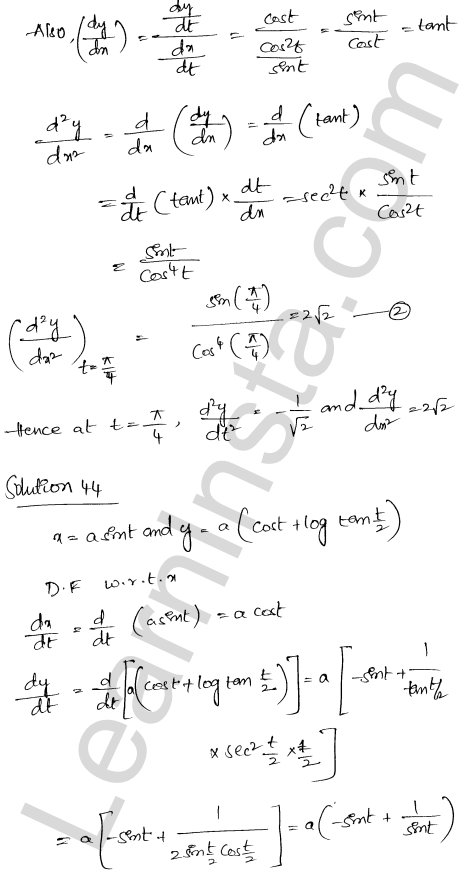 Also, (dy/dx) = (dy/dt)/(dx/dt) = cost/(cos²t/sint) = sint/cost = tant
d²y/dx² = d/dx (dy/dx) = d/dx (tant)
= d/dt (tant) × dt/dx = sec²t × sint/cos²t
= sint/cos⁴t
(d²y/dx²) t=π/4 = sin(π/4)/cos⁴(π/4) = 2√2 — ②
Hence at t = π/4, d²y/dt² = -1/√2 and d²y/dx² = 2√2
Solution 44
x = a sint and y = a (cost + log tan t/2)
D.F w.r.t.x
dx/dt = d/dt (a sint) = a cost
dy/dt = d/dt [a(cost + log tan t/2)] = a [-sint + 1/tant/2
× sec² t/2 × 1/2]
= a [-sint + 1/(2sin t/2 cos t/2)] = a (-sint + 1/sint)
LearnInsta.com